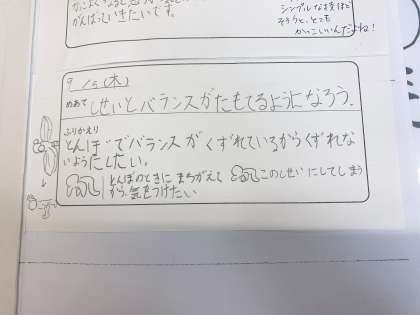 がんばっていきたいです。
シンプルな技ほど
そろうと、とても
かっこいいんだよね!
9/5(木)
めあて しせいとバランスがたもてるようになろう。
ふりかえり
とんぼでバランスがくずれているからくずれな
いようにしたい。
とんぼのときにまちがえて このしせいにしてしまう
から、気をつけたい